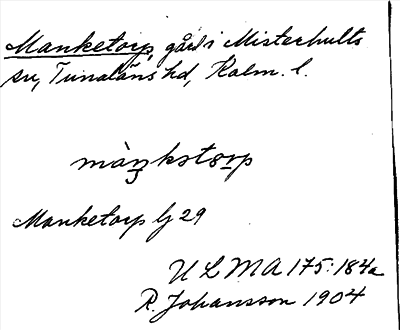 Manketorp, gård i Misterhults
sn, Tunaläns hd, Kalm. l.
màŋkstorp
Manketorp Lj 29
ULMA 175:184a
R. Johansson 1904